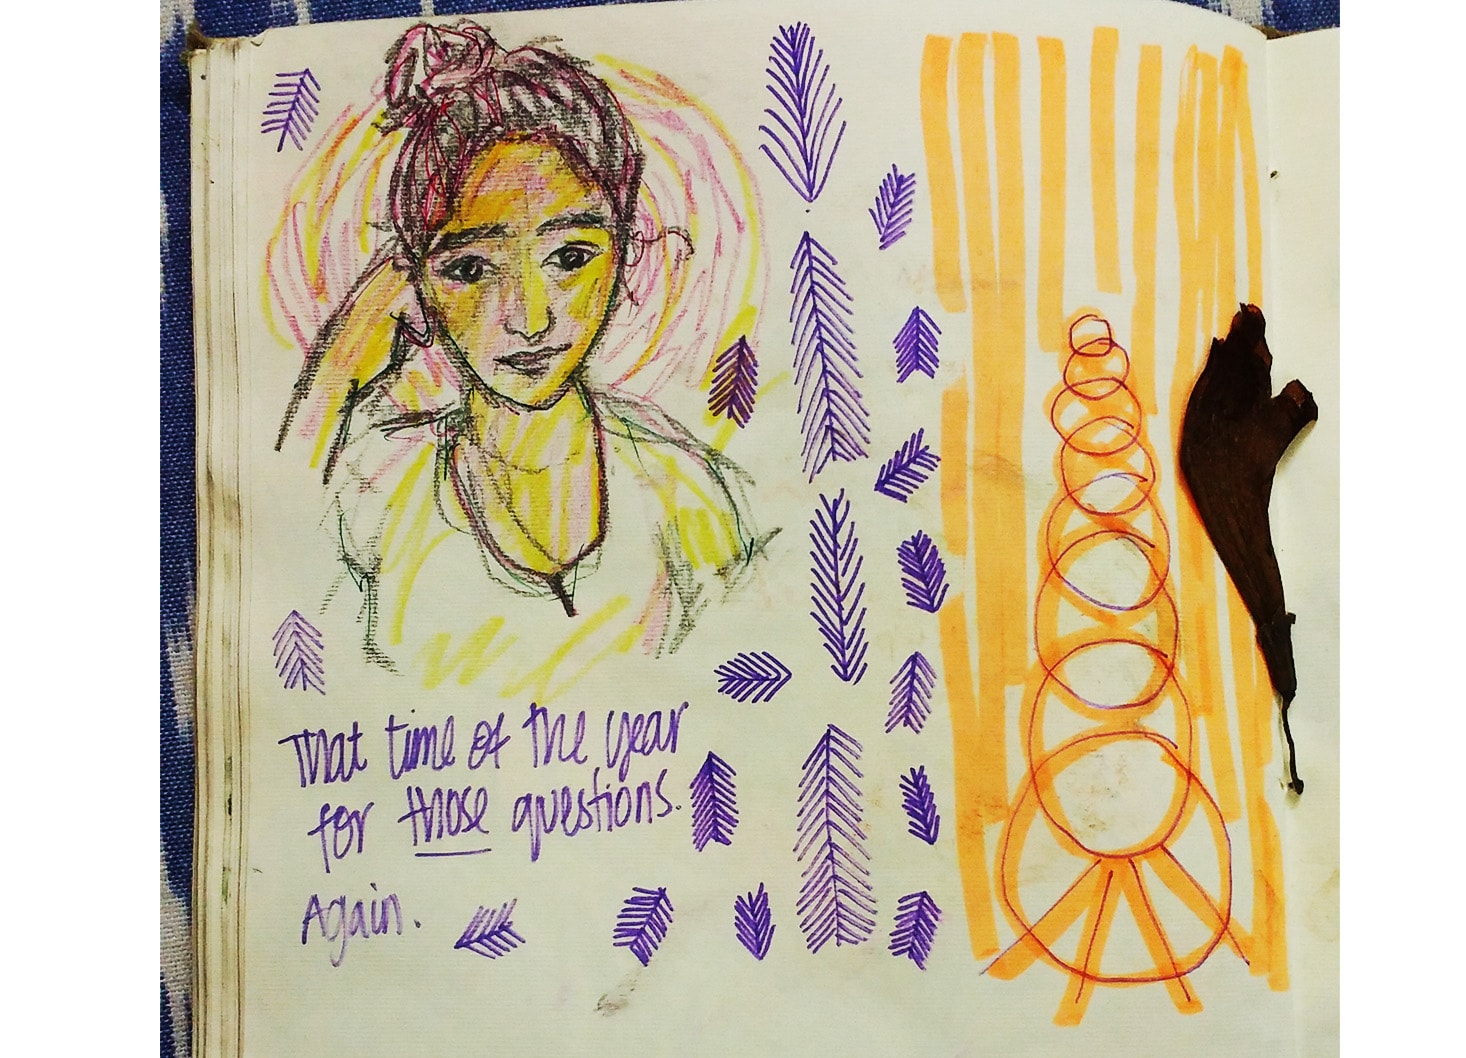 That time of the year
for those questions.
Again.